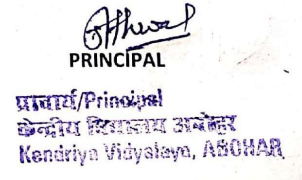 PRINCIPAL
प्राचार्य/Principal
केन्द्रीय विद्यालय अबोहर
Kendriya Vidyalaya, ABOHAR